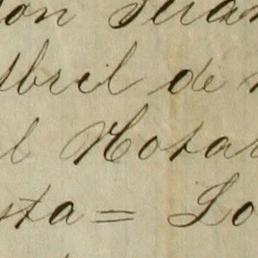 on Fran
Abril de
l Notar
sta = Lo